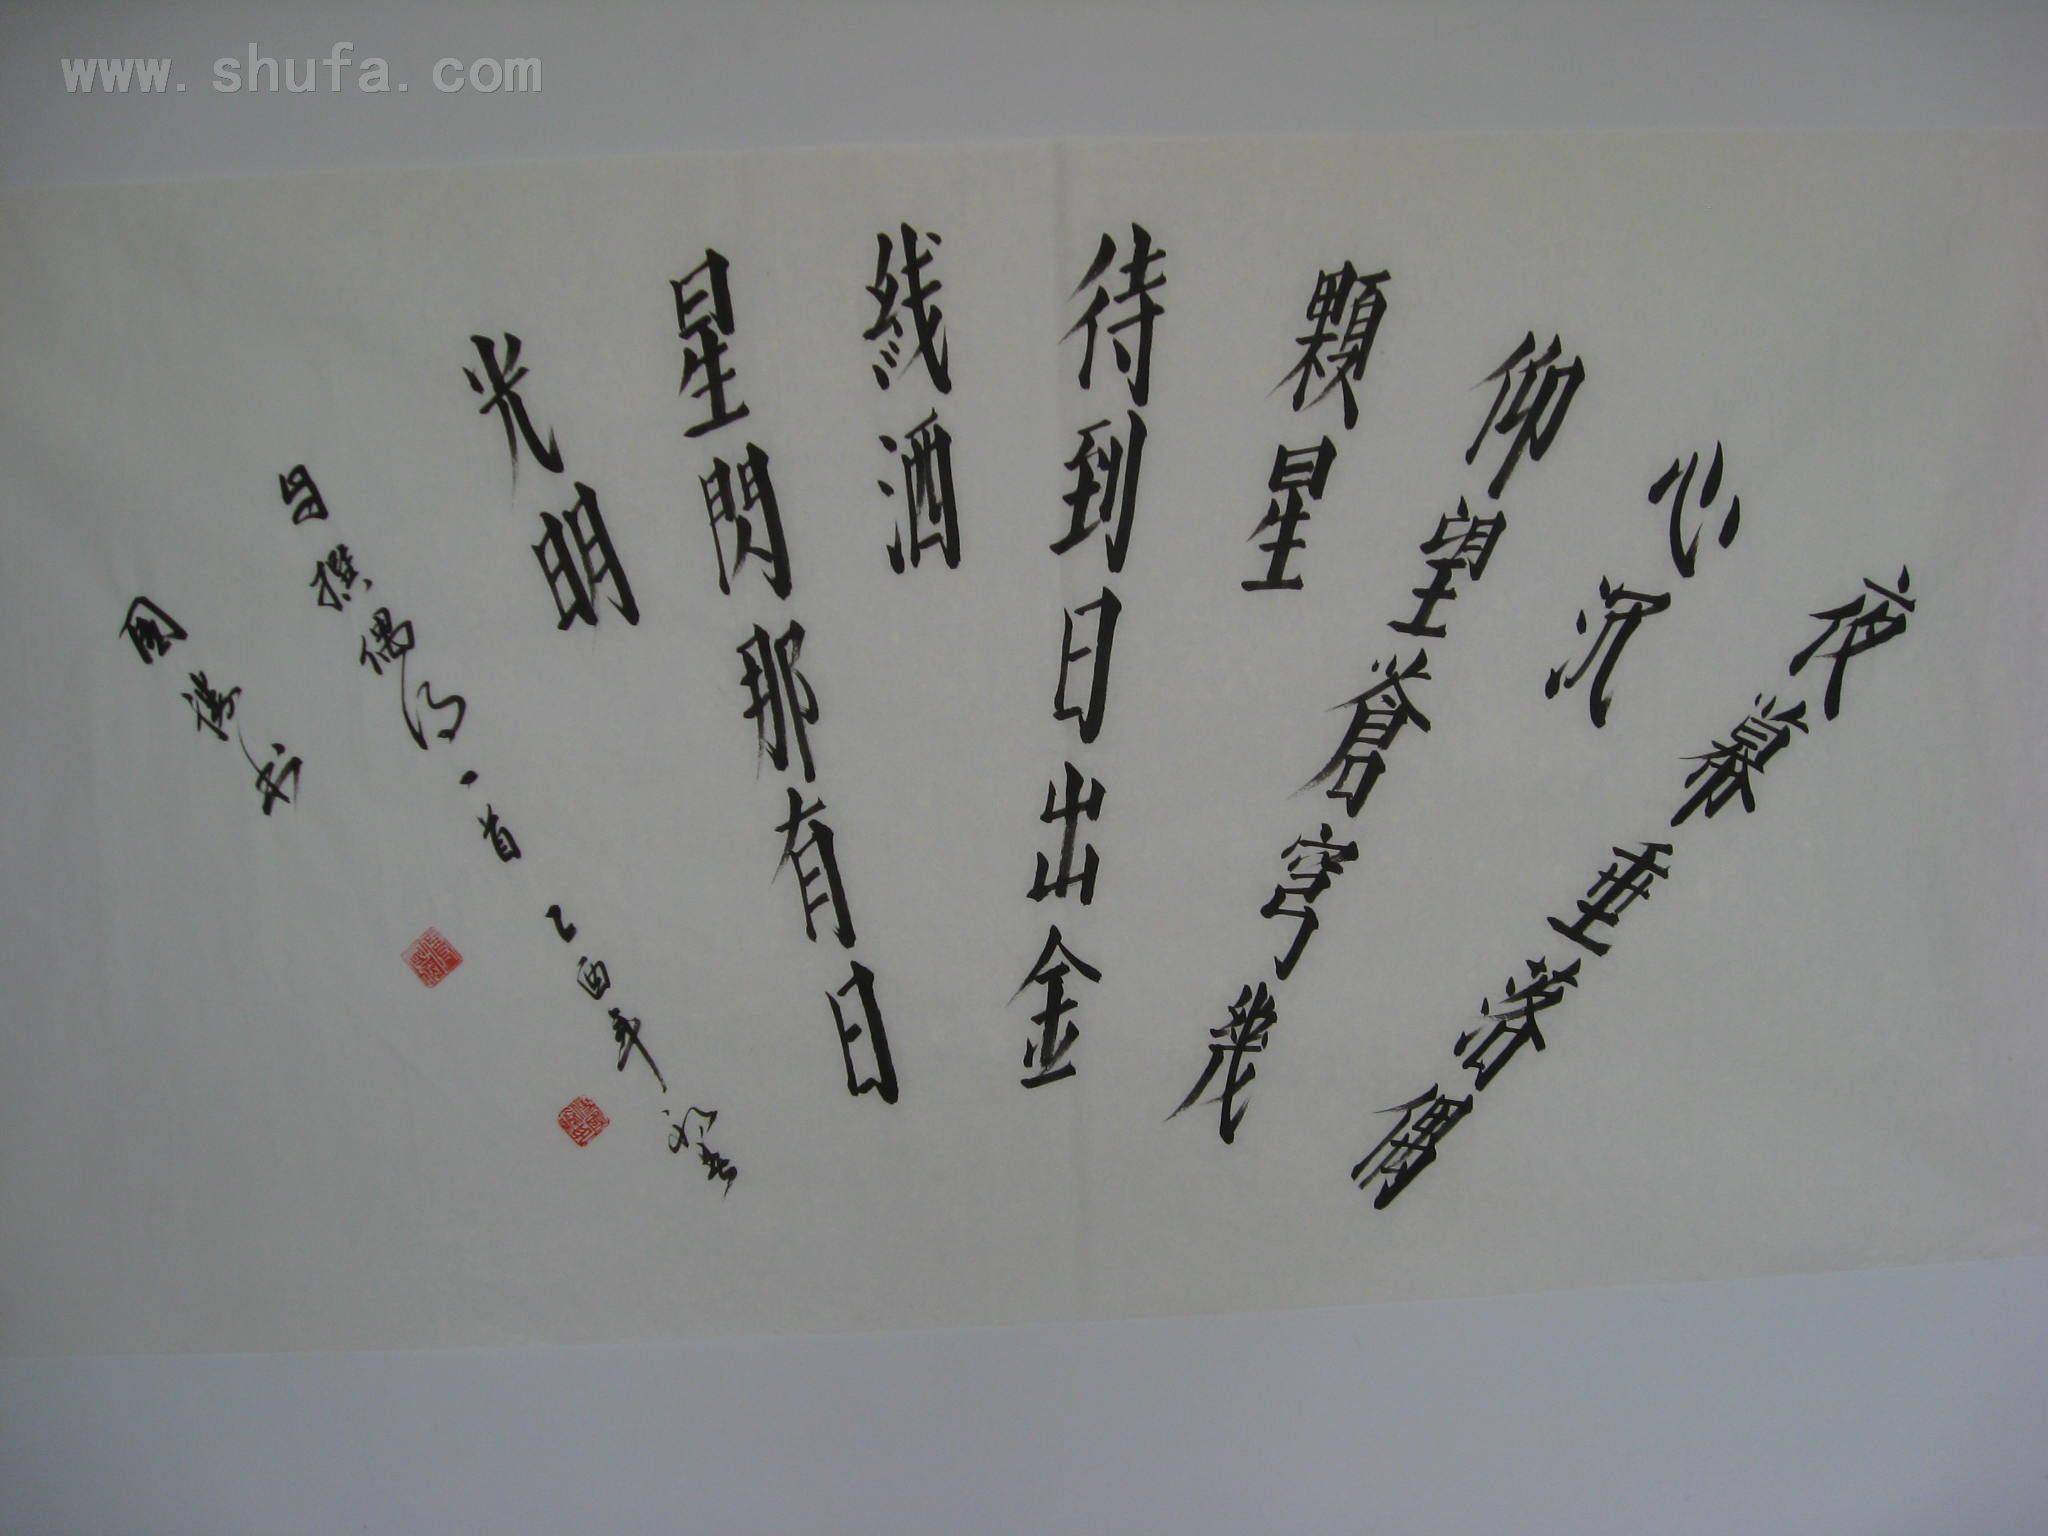 www.shufa.com
夜幕垂落偶
心沉
仰望蒼穹幾
顆星
待到日出金
线洒
星閃那有日
光明
自撰偶得一首 乙酉年初春
国 书